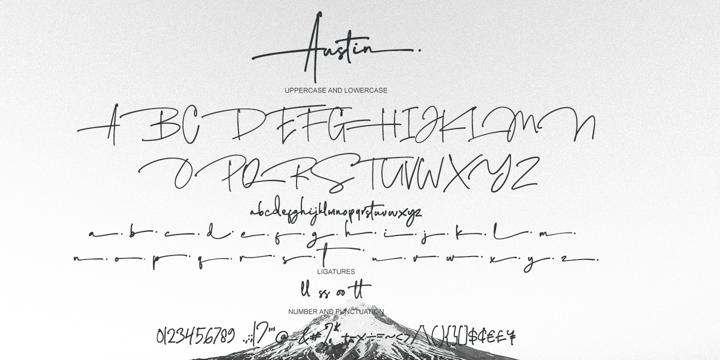 Austin.
UPPERCASE AND LOWERCASE
A B C D E F G H I J K L M N
O P Q R S T U V W X Y Z
abcdefghijklmnopqrstuvwxyz
a. b. c. d. e. f. g. h. i. j. k. l. m.
n. o. p. q. r. s. t. u. v. w. x. y. z.
LIGATURES
ll ss oo tt
NUMBER AND PUNCTUATION
0123456789